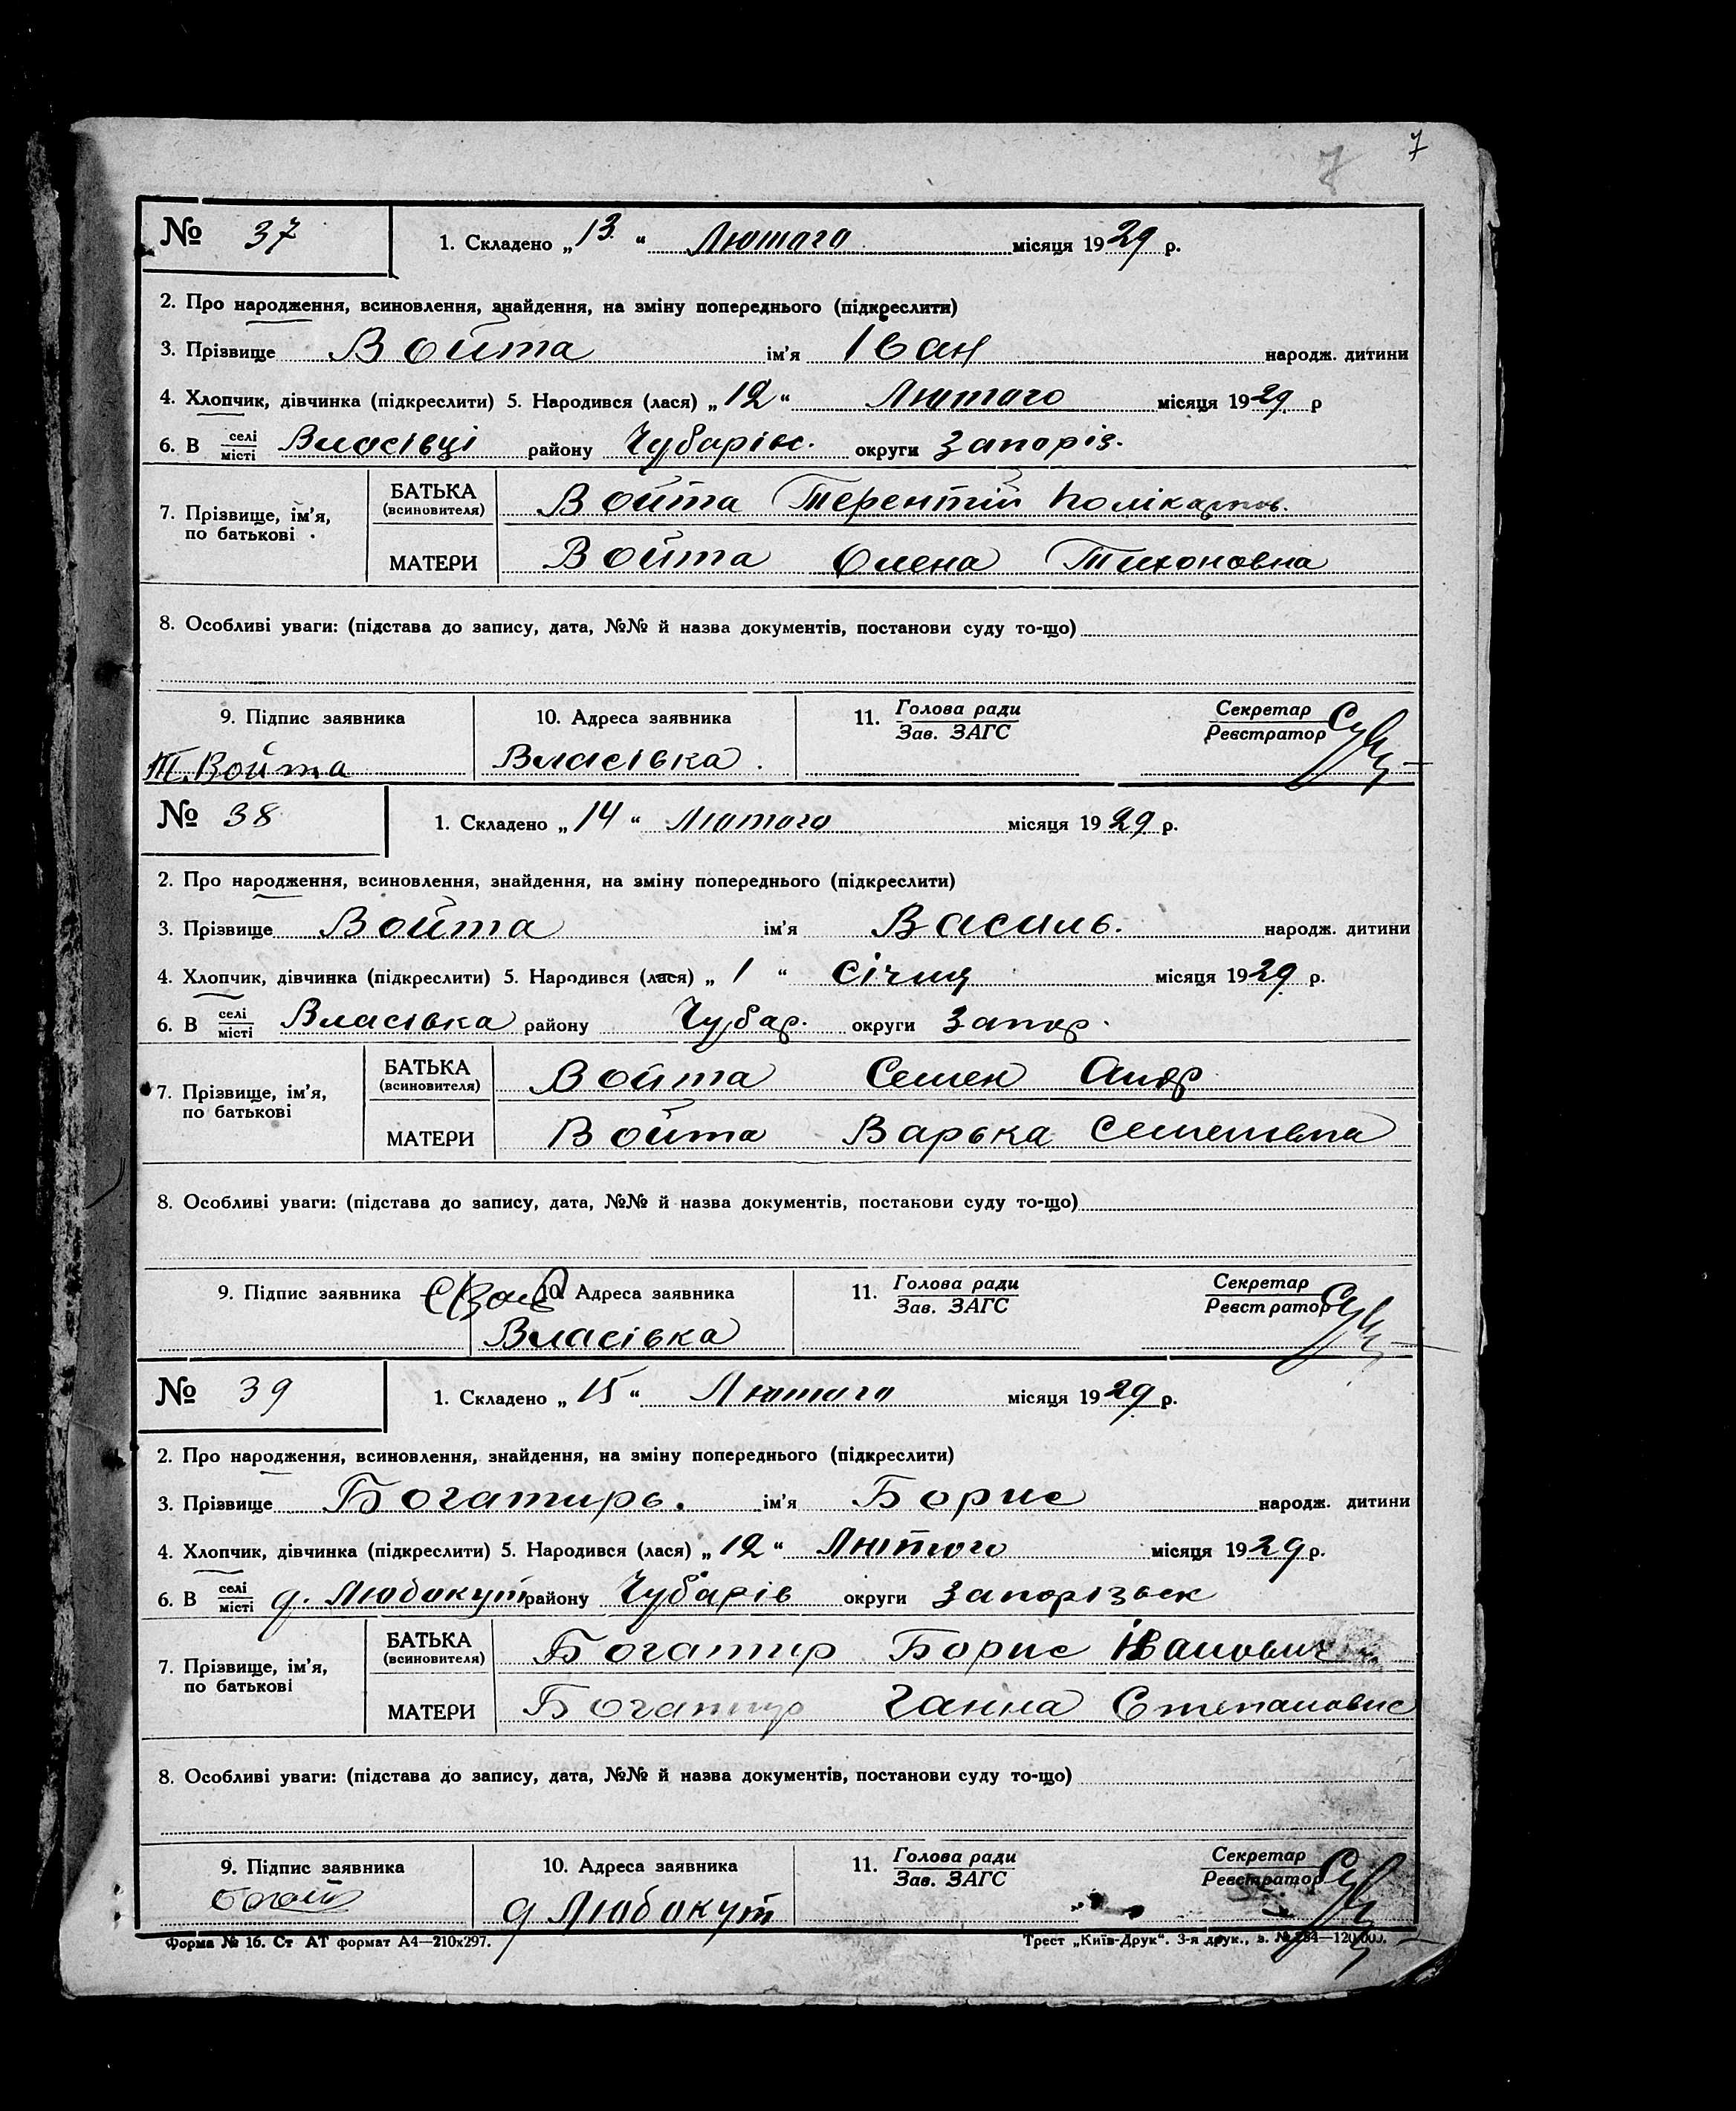 7
7
№ 37 1. Складено „13“ Лютаго місяця 1929 р.
2. Про народження, всиновлення, знайдення, на зміну попереднього (підкреслити)
3. Прізвище Войта ім'я Іван народж. дитини
4. Хлопчик, дівчинка (підкреслити) 5. Народився (лася) „12“ Лютаго місяця 1929 р
6. В селі місті Власівці району Чубарівс. округи Запоріз.
7. Прізвище, ім'я, по батькові
БАТЬКА (всиновителя) Войта Терентій Полікарпов.
МАТЕРИ Войта Олена Тихоновна
8. Особливі уваги: (підстава до запису, дата, №№ й назва документів, постанови суду то-що)
9. Підпис заявника 10. Адреса заявника 11. Голова ради Зав. ЗАГС Секретар Реєстратор
Т. Войта Власівка.
№ 38 1. Складено „14“ Лютаго місяця 1929 р.
2. Про народження, всиновлення, знайдення, на зміну попереднього (підкреслити)
3. Прізвище Войта ім'я Василь. народж. дитини
4. Хлопчик, дівчинка (підкреслити) 5. Народився (лася) „1“ Січня місяця 1929 р.
6. В селі місті Власівка району Чубар. округи Запор.
7. Прізвище, ім'я, по батькові
БАТЬКА (всиновителя) Войта Семен Андр
МАТЕРИ Войта Варька Семеновна
8. Особливі уваги: (підстава до запису, дата, №№ й назва документів, постанови суду то-що)
9. Підпис заявника 10. Адреса заявника 11. Голова ради Зав. ЗАГС Секретар Реєстратор
Власівка
№ 39 1. Складено „15“ Лютаго місяця 1929 р.
2. Про народження, всиновлення, знайдення, на зміну попереднього (підкреслити)
3. Прізвище Богатирь. ім'я Борис народж. дитини
4. Хлопчик, дівчинка (підкреслити) 5. Народився (лася) „12“ Лютого місяця 1929 р.
6. В селі місті д. Любокут району Чубарів округи Запорізьк
7. Прізвище, ім'я, по батькові
БАТЬКА (всиновителя) Богатир Борис Іванович
МАТЕРИ Богатир Ганна Степановна
8. Особливі уваги: (підстава до запису, дата, №№ й назва документів, постанови суду то-що)
9. Підпис заявника 10. Адреса заявника 11. Голова ради Зав. ЗАГС Секретар Реєстратор
д Любокут
Форма № 16. Ст АТ формат А4—210х297. Трест „Київ-Друк“. 3-я друк., з.